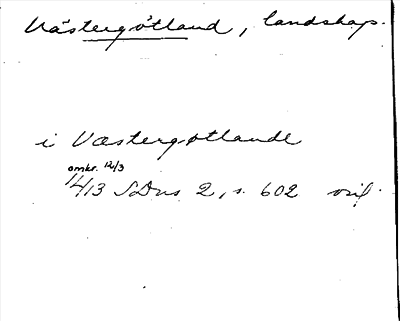 Västergötland, landskap.
i Væstergøtlande
omkr. 12/3
1413 SDns 2, s. 602 orig.